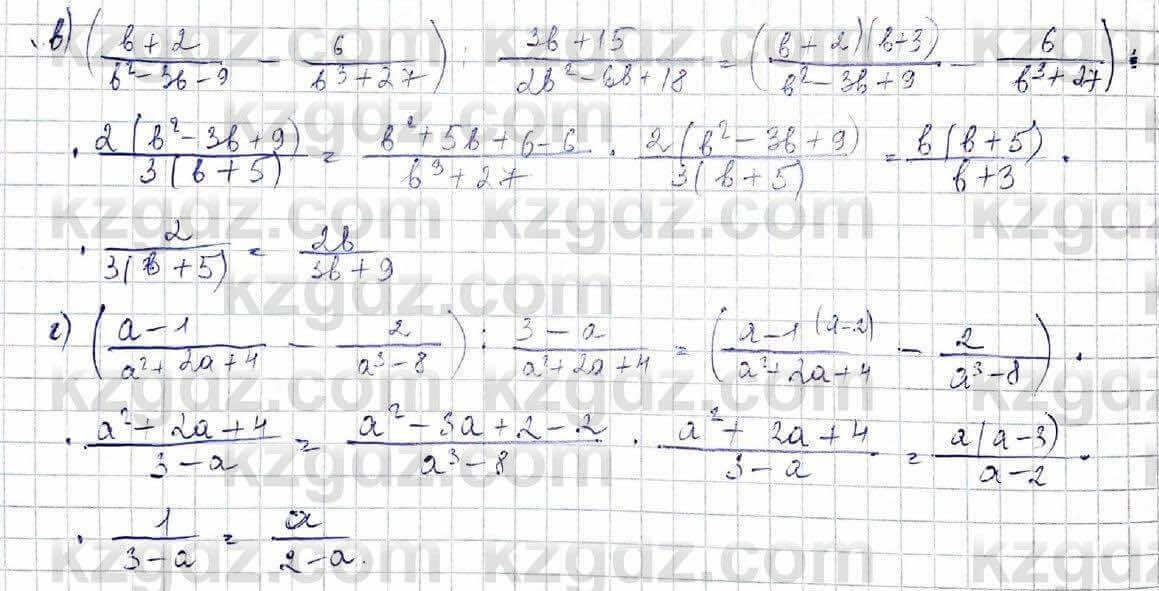 в) ((в+2)/(в²-3в-9) - 6/(в³+27)) : (3в+15)/(2в²-6в+18) = ((в+2)(в+3)/(в²-3в+9) - 6/(в³+27)) ·
· 2(в²-3в+9)/3(в+5) = (в²+5в+6-6)/(в³+27) · 2(в²-3в+9)/3(в+5) = в(в+5)/(в+3) ·
· 2/3(в+5) = 2в/(3в+9)
г) ((a-1)/(a²+2a+4) - 2/(a³-8)) : (3-a)/(a²+2a+4) = (a-1(a-2)/(a²+2a+4) - 2/(a³-8)) ·
· (a²+2a+4)/(3-a) = (a²-3a+2-2)/(a³-8) · (a²+2a+4)/(3-a) = a(a-3)/(a-2) ·
· 1/(3-a) = a/(2-a).
kzgdz.com